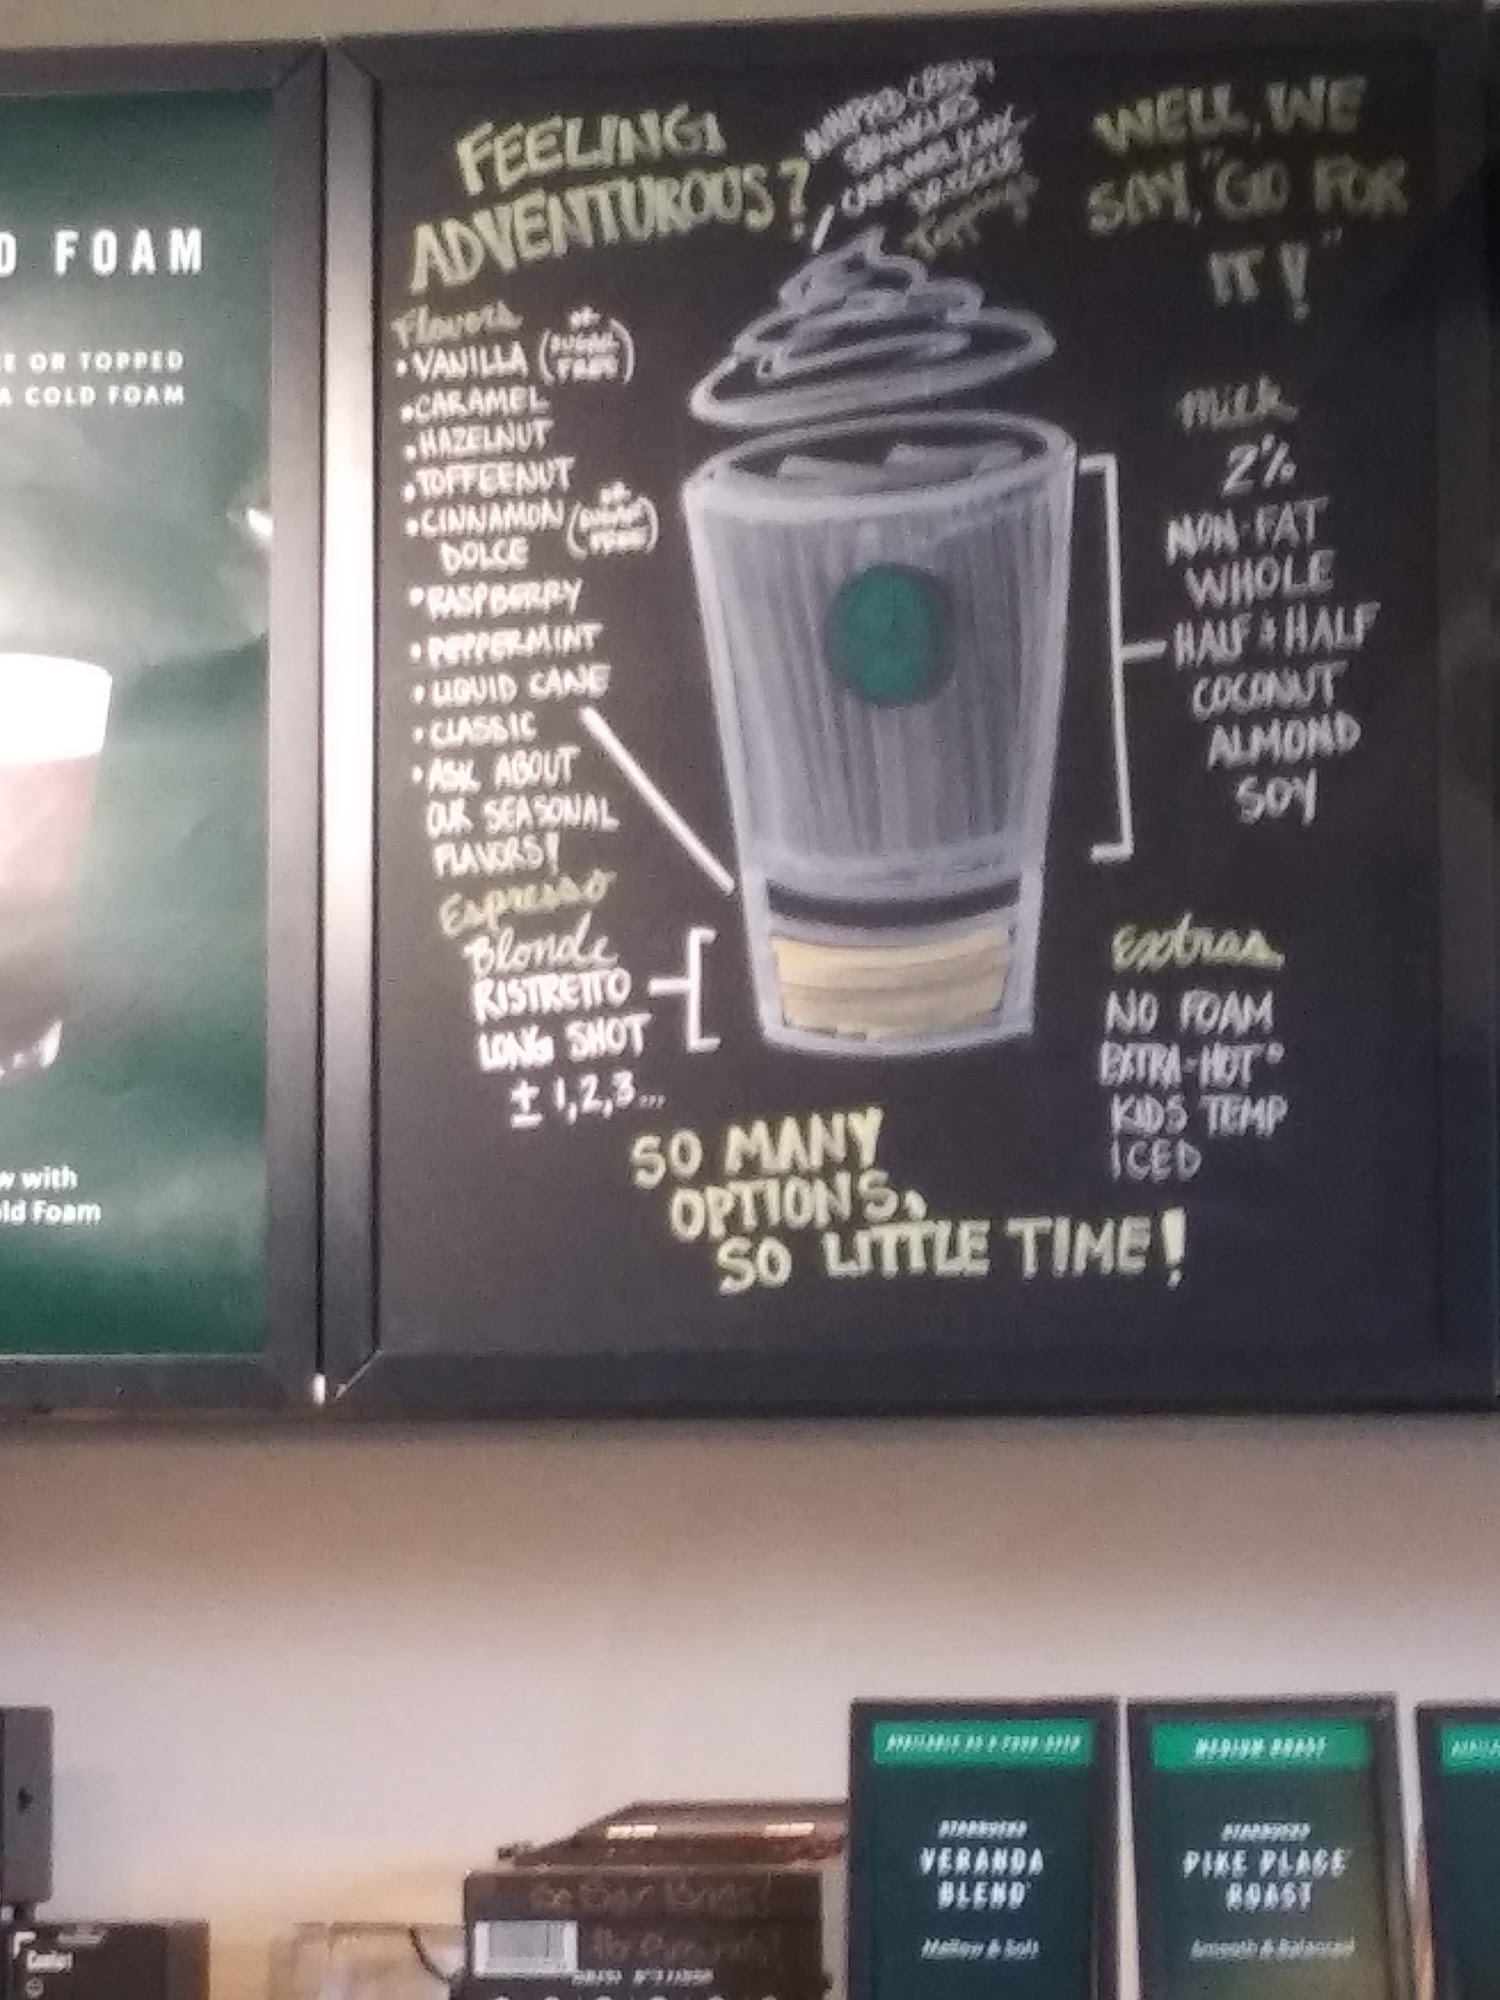 D FOAM
OR TOPPED
A COLD FOAM
with
Foam
FEELING
ADVENTUROUS?
WHIPPED CREAM
SPRINKLES
CARAMEL
Toppings
WELL, WE
SAY, "GO FOR
IT!"
Flavors
• VANILLA (or SUGAR FREE)
• CARAMEL
• HAZELNUT
• TOFFEENUT
• CINNAMON (or SUGAR FREE)
DOLCE
• RASPBERRY
• PEPPERMINT
• LIQUID CANE
• CLASSIC
• ASK ABOUT
OUR SEASONAL
FLAVORS!
Espresso
Blonde
RISTRETTO
LONG SHOT
± 1,2,3...
Milk
2%
NON-FAT
WHOLE
HALF & HALF
COCONUT
ALMOND
SOY
Extras
NO FOAM
EXTRA-HOT°
KIDS TEMP
ICED
SO MANY
OPTIONS,
SO LITTLE TIME!
STARBUCKS
VERANDA
BLEND
Mellow & Soft
MEDIUM ROAST
STARBUCKS
PIKE PLACE
ROAST
Smooth & Balanced